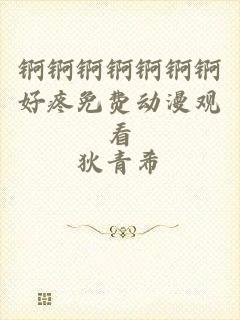 锕锕锕锕锕锕锕
好疼免费动漫观
看
狄青希